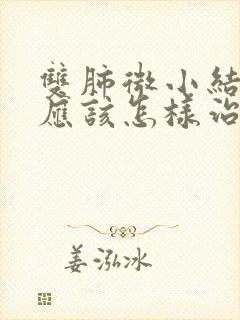 雙肺微小結
應該怎樣治
姜泓冰